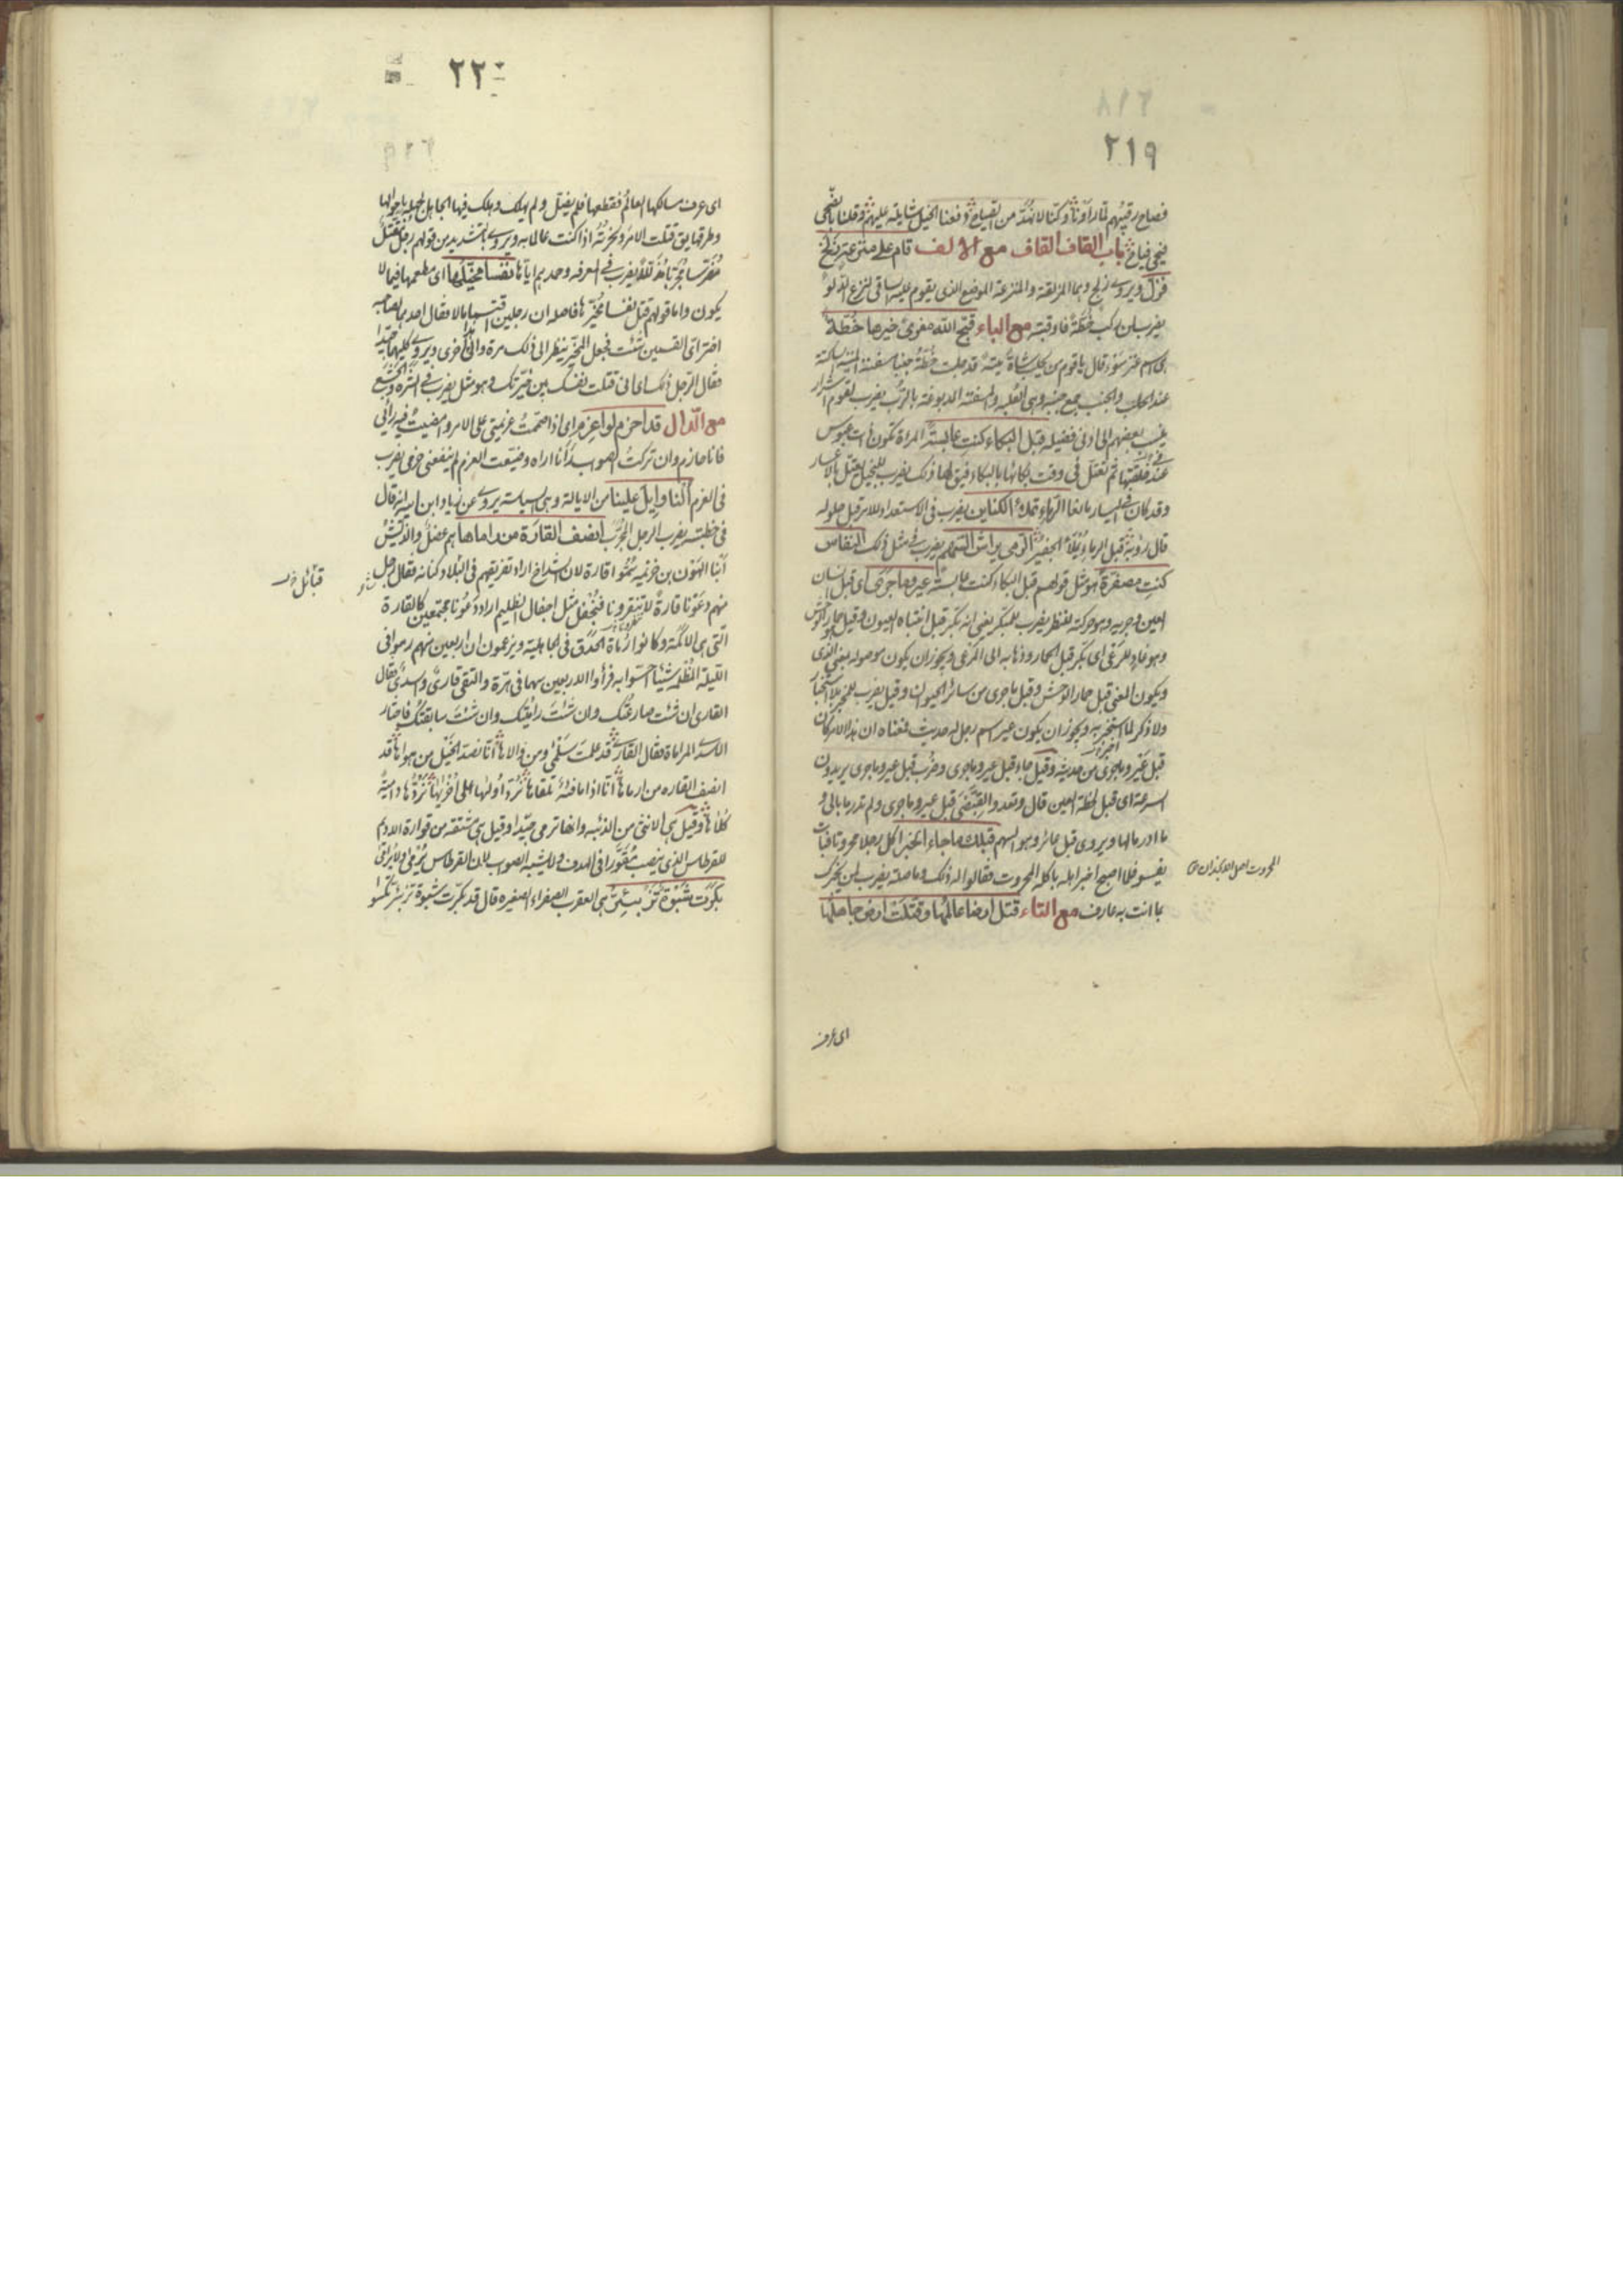 ٢١٩
فصاح رقيبهم لما رآونا وكنا لا نهده من الصياح دفعنا الخيل شايلة عليهم وقلنا بالضحى
فيحى فياح باب القاف القاف مع الالف قام على منزعة زلخ
فزل ويروى زلج وهما المزلقة والمنزعة الموضع الذى يقوم عليه الساقى لنزع الدلو
يضرب لمن ركب خطة فاوقبته مع الباء قبح الله معزى خيرها خطة
هى اسم عنز سوء قال يا قوم من يحلب شاة ميتة قد حلبت خطة جنبا مسفتة الميتة الساكتة
عند الحلب والجنب جمع جنبة وهى العلبة والمسفتة المدبوغة بالرب يضرب لقوم اشرار
ينسب بعضهم الى ادنى فضيلة قبل البكاء كنت عابسة المراة تكون ذات عبوس
عند خلقتها ثم تعتل فى وقت بكائها بالبكاء فيق لها ذلك يضرب للبخيل يعتل بالاعسار
وقد كان فى اليسار مانعا الرماء تملأ الكنائن يضرب فى الاستعداد للامر قبل حلوله
قال رؤبة قبل الرماء يملأ الجفير الرمى يراش السهم يضرب فى مثل ذلك النفاس
كنت مصفرة هو مثل قولهم قبل البكاء كنت عابسة عير وما جرى اى قبل انسان
العين وجريه وهو حركته للنظر يضرب للمبكر يعنى انه بكر قبل انتباه العيون وقيل حمار الوحش
وهو غاد للمرعى اى بكر قبل الحمار وذهابه الى المرعى ويجوز ان يكون ما موصولة بمعنى الذى
ويكون المعنى قبل حمار الوحش وقبل ما جرى من سائر الحيوان وقيل يضرب للمخبر بلا استخبار
ولا ذكر لما استخبر به ويجوز ان يكون عير اسم رجل له حديث فمعناه ان هذا الامر كان
قبل عير وما جرى من حديثه وقيل جاء قبل عير وما جرى وضرب قبل عير وما جرى يريدون
السرعة اى قبل لحظة العين قال وتعدو القبضى قبل عير وما جرى ولم تدر ما بالى و
ما ادر مالها ويروى قبل عائر وهو السهم قبلك ما جاء الخبر اكل رجل محروتا فبات
يفسو فلما اصبح اخبر اهله باكله المحروت فقالوا له ذلك وما صلة يضرب لمن يخبرك
بما انت به عارف مع التاء قتل ارضا عالمها وقتلت ارض جاهلها
اى عرف
٢٢٠
اى عرف مسالكها العالم فقطعها فلم يقتل ولم يهلك وهلك فيها الجاهل لجهله باحوالها
وطرقها يق قتلت الامر ونحرته اذا كنت عالما به ويروى بالتشديد من قولهم رجل مقتل
يضرب فى المعرفة وحمدهم اياها نفسا مخيلها اى مطمعها فيما لا
يكون واما قولهم قتل نفسا مخيرها فاصله ان رجلين اقتسما مالا فقال احدهما لصاحبه
اختر اى القسمين شئت فجعل المخير ينظر الى ذلك مرة والى الاخرى ويرى كليهما جيدا
فقال الرجل ذلك اى انى قتلت نفسك حين خيرتك وهو مثل يضرب فى الشره والجشع
مع الدال قد احزم لو اعزم اى اذا صممت عزيمتى على الامر وامضيت فيه رأيى
فانا حازم وان تركت الصواب وانا اراه وضيعت العزم لم ينفعنى حزمى يضرب
فى العزم النا وايل علينا من الايالة وهى السياسة يروى عن زياد ابن ابيه انه قال
فى خطبته يضرب الرجل المجرب انصف القارة من راماها هم عضل والديش
ابنا الهون بن خزيمة سموا قارة لان الشداخ اراد تفريقهم فى البلاد كنانة فقال رجل
منهم دعونا قارة لا تنفرونا فنجفل مثل اجفال الظليم اراد دعونا مجتمعين كالقارة
التى هى الاكمة وكانوا رماة الحدق فى الجاهلية ويزعمون ان اربعين منهم رموا فى
الليلة المظلمة شيئا احسوا به فرأوا الاربعين سهما فى هرة والتقى قارى واسدى فقال
القارى ان شئت صارعتك وان شئت راميتك وان شئت سابقتك فاختار
الاسدى المراماة فقال القارى قد علمت سلمى ومن والاها انا نصد الخيل من هواها قد
انصف القارة من راماها انا اذا ما فئة نلقاها نرد اولها على اخريها نردها دامية
كلاها وقيل هى الانثى من الذئبة وانها ترمى جيدا وقيل هى مشتقة من قوارة الاديم
للقرطاس الذى ينصب مقورا فى الهدف
بكرت شبوة تزبئر هى العقرب الصفراء الصغيرة قال قد بكرت شبوة تزبئر